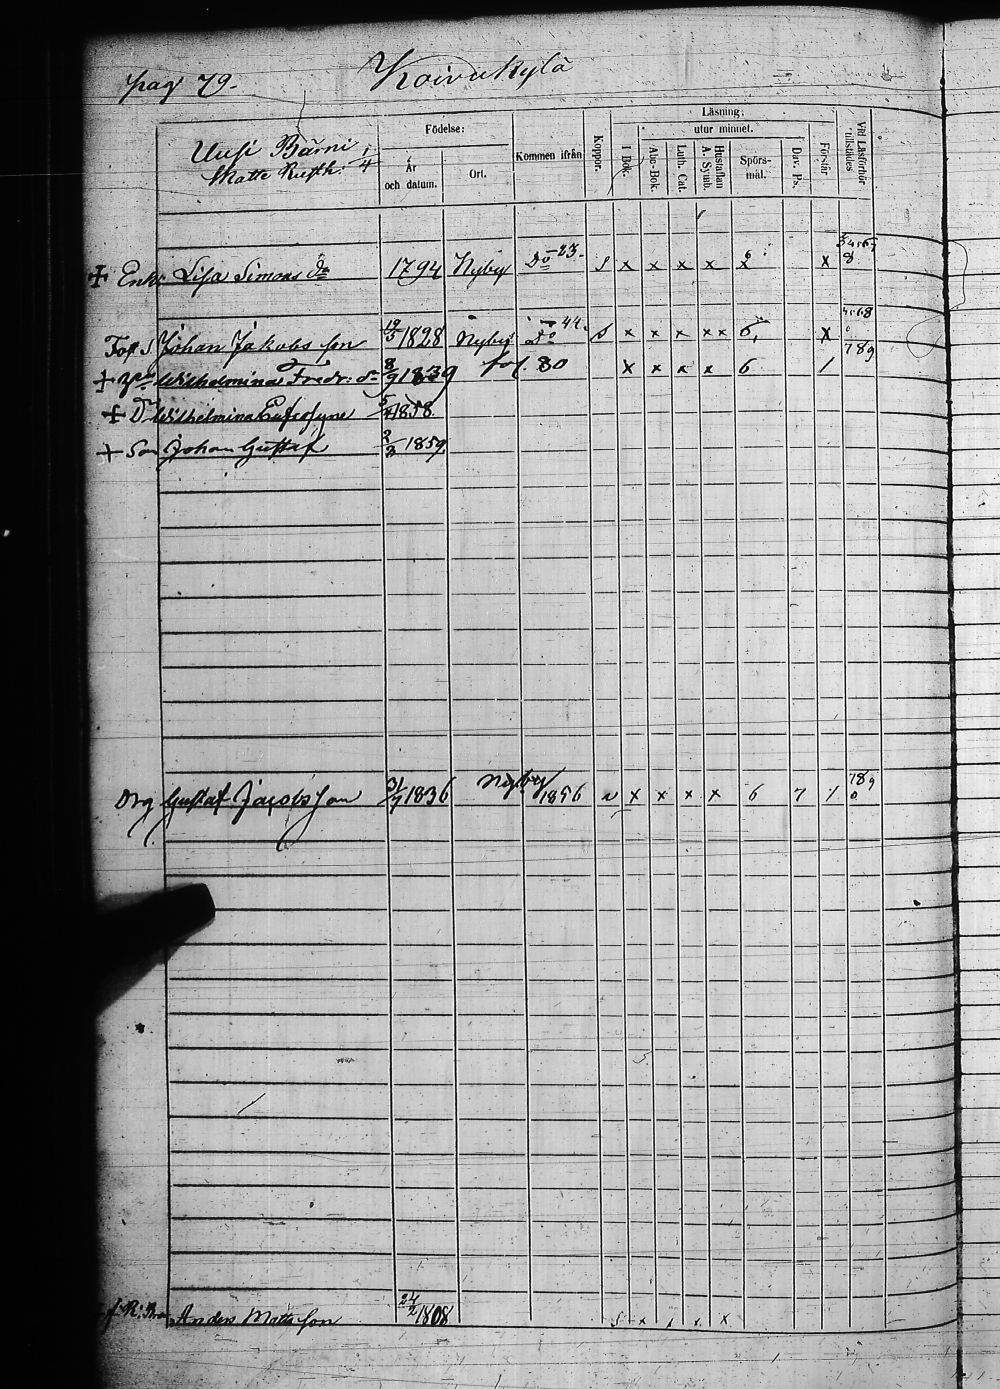 pag 79. Koivukylä
Uusi Bärni 1/4
Matts Rusth:
Födelse:
År och datum.
Ort.
Kommen ifrån
Koppor.
Läsning:
I Bok.
utur minnet.
Abc-Bok.
Luth. Cat.
Hustaflan A. Symb.
Spörs-mål.
Dav. Ps.
Förstår
Vid Läsförhör tillstädes
+ Enk: Lisa Simons dr 1794 Nyby Do -23. s x x x x x x 8
Johan Jakobs son 19/5 1828 Nyby Do -44. s x x x x x 6 x 789
+ Wilhelmina Fredr: d. 8/9 1839 fol. 80 x x x x 6 /
+ Dr Wilhelmina Eufrosyne 1858
+ Son Johan Gustaf 2/3 1859.
Drg Gustaf Jacobsson 31/7 1836 Nyby 1856 x x x x 6 7 / 789
Anders Mattsson 24/2 1808 s x x x